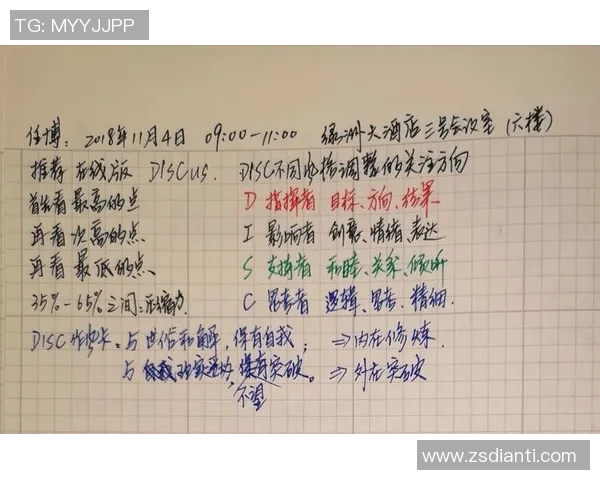 TG: MYYJJPP
任博: 2018年11月4日 09:00-11:00 绿洲大酒店三号会议室 (六楼)
推荐在线版 DISCus. DISC不同风格调整的关注方向
首先看最高的点 D 指挥者 目标、方向、结果
再看次高的点 I 影响者 创意、情绪、表达
再看最低的点、 S 支持者 和睦、关系、倾听
35%-65%之间: C 思考者 逻辑、思考、精细.
DISC 与世俗和解,保有自我; ⇒内在修炼
与 突破。⇒外在突破
不望
www.zsdianti.com